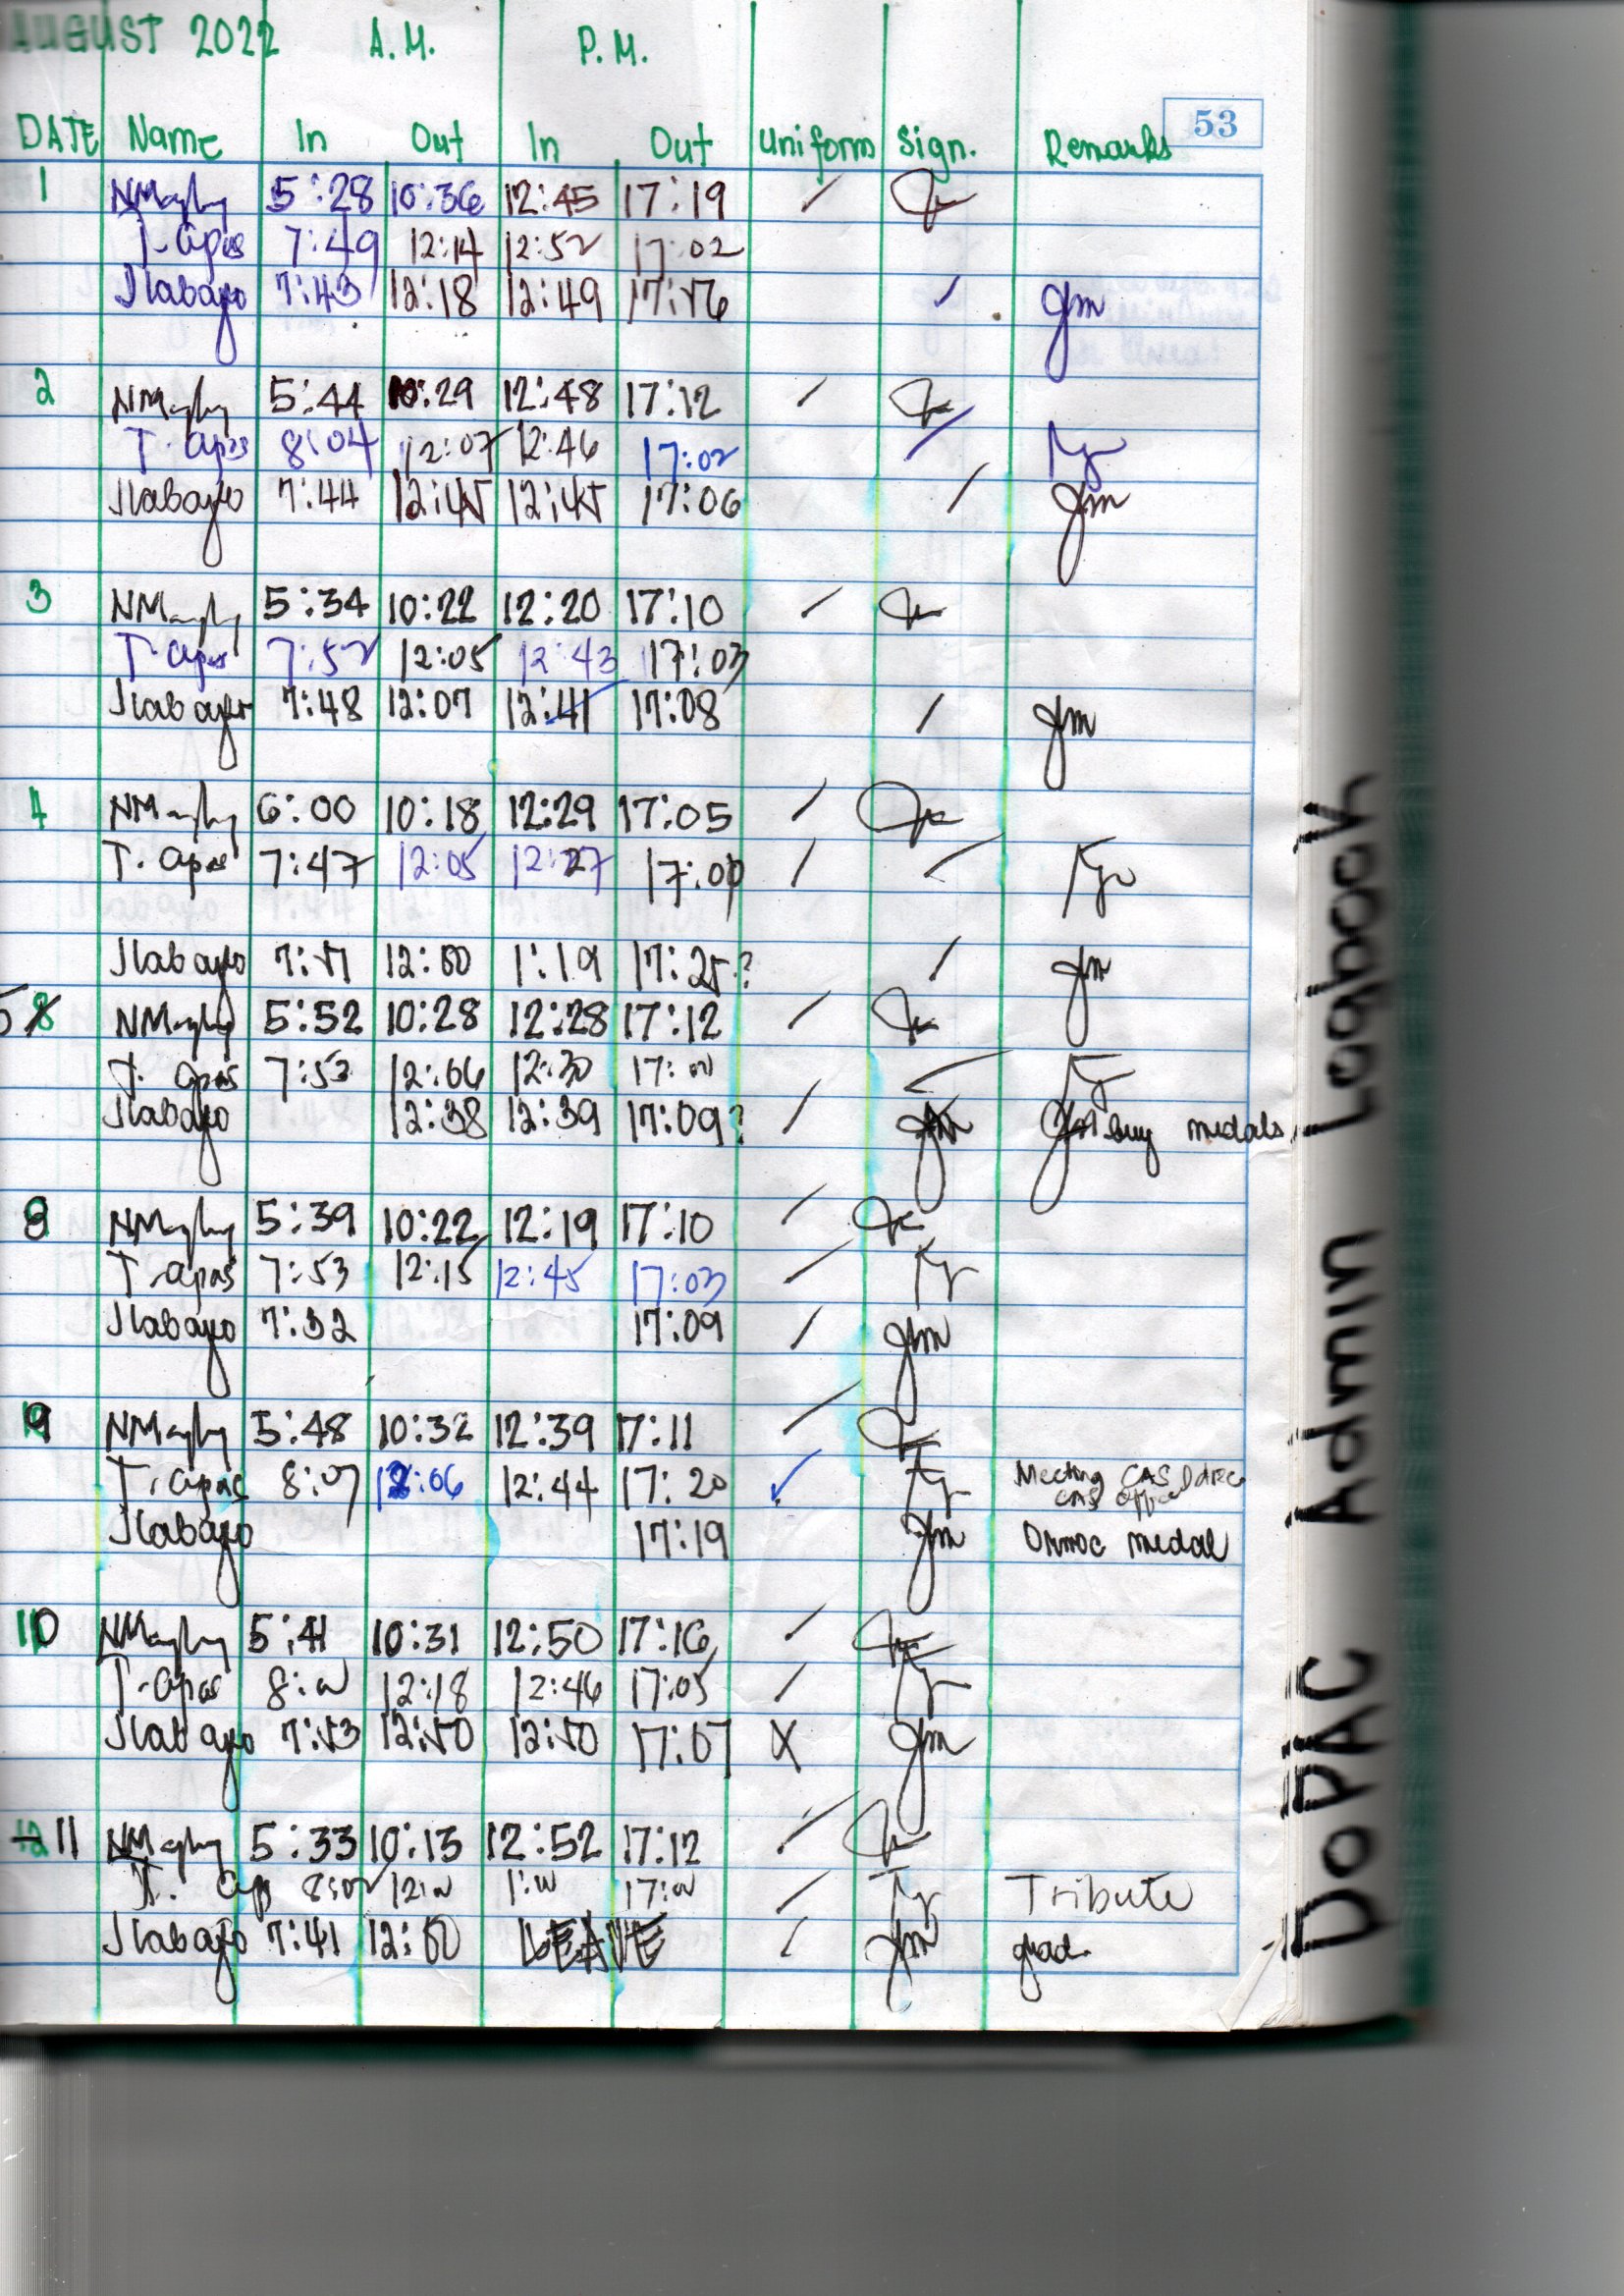 AUGUST 2022 A.M. P.M.
53
DATE Name In Out In Out Uniform Sign. Remarks
1 5:28 10:36 12:45 17:19 /
T. Apas 7:49 12:14 12:52 17:02
Jlabayo 7:43 12:18 12:49 17:16 /
2 5:44 10:29 12:48 17:12 /
T. Apas 8:04 12:07 12:46 17:02 /
Jlabayo 7:44 12:45 12:45 17:06 /
3 5:34 10:22 12:20 17:10 /
T. Apas 7:52 12:05 12:43 17:03
Jlabayo 7:48 12:07 12:41 17:08 /
4 6:00 10:18 12:29 17:05 /
T. Apas 7:47 12:05 12:27 17:00 / /
Jlabayo 7:51 12:50 1:19 17:25? /
5 5:52 10:28 12:28 17:12 /
T. Apas 7:53 12:06 12:30 17:00 /
Jlabayo 12:38 12:39 17:09? / buy medals
8 5:39 10:22 12:19 17:10 /
T. Apas 7:53 12:15 12:45 17:03 /
Jlabayo 7:32 17:09 /
9 5:48 10:32 12:39 17:11 /
T. Apas 8:07 12:06 12:44 17:20 ✓ Meeting CAS
CAS office
Jlabayo 17:19 Ormoc medal
10 5:41 10:31 12:50 17:16 /
T. Apas 8:00 12:18 12:46 17:05 /
Jlabayo 7:53 12:50 12:50 17:07 X
11 5:33 10:13 12:52 17:12 /
T. Apas 8:02 12:00 1:00 17:00 / Tribute
Jlabayo 7:41 12:50 LEAVE / grad.
DoPAC Admin Logbook